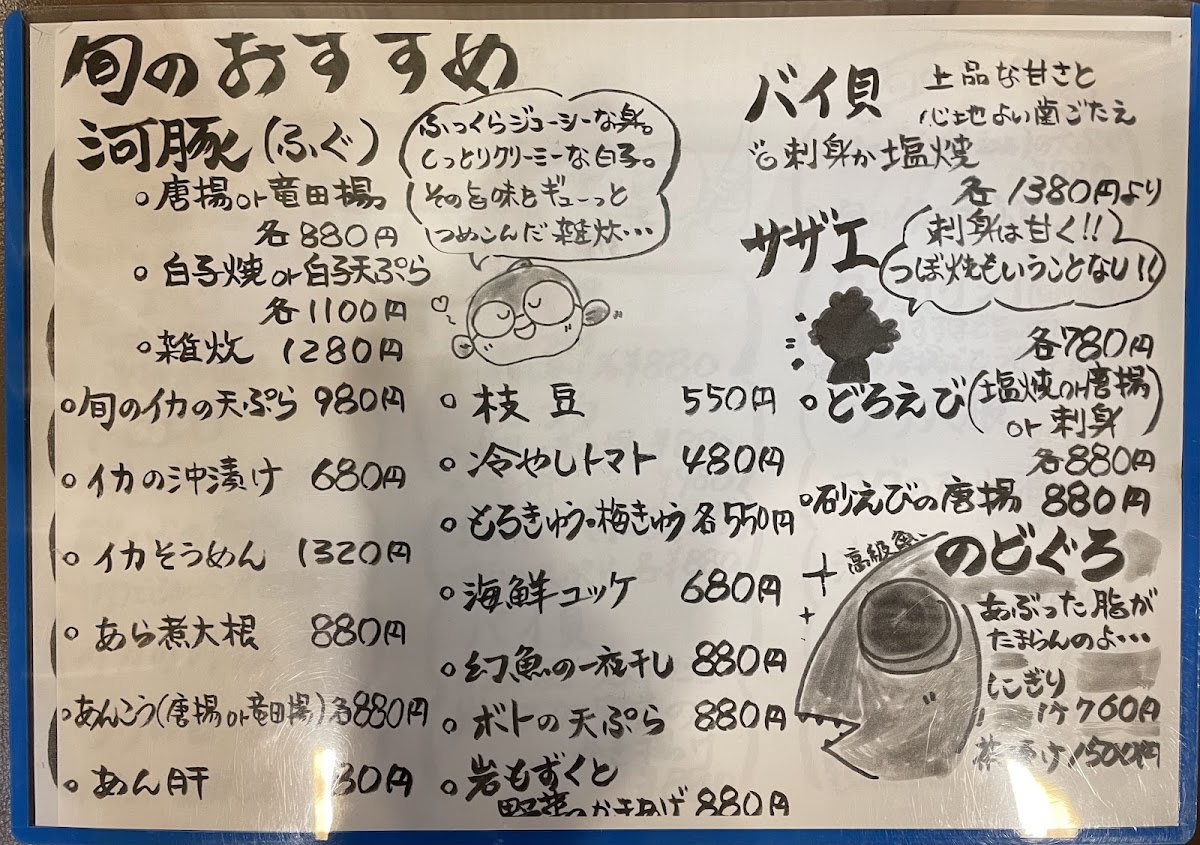 旬のおすすめ
河豚(ふぐ)
ふっくらジューシーな身。
しっとりクリーミーな白子。
その旨味とギューっと
つめこんだ雑炊・・・
○唐揚or竜田揚
各880円
○白子焼or白子天ぷら
各1100円
○雑炊 1280円
○旬のイカの天ぷら 980円
○イカの沖漬け 680円
○イカそうめん 1320円
○あら煮大根 880円
○あんこう(唐揚or竜田揚)各880円
○あん肝 30円
○枝豆 550円
○冷やしトマト 480円
○もろきゅう・梅きゅう 各550円
○海鮮コッケ 680円
○幻魚の一夜干し 880円
○ボトの天ぷら 880円
○岩もずくと
野菜のかきあげ 880円
バイ貝
上品な甘さと
心地よい歯ごたえ
刺身か塩焼
各1380円より
サザエ
刺身は甘く!!
つぼ焼もいうことなし!!
各780円
○どろえび(塩焼or唐揚
or刺身)
各880円
○砂えびの唐揚 880円
高級魚
のどぐろ
あぶった脂が
たまらんのよ・・・
にぎり
760円
1500円